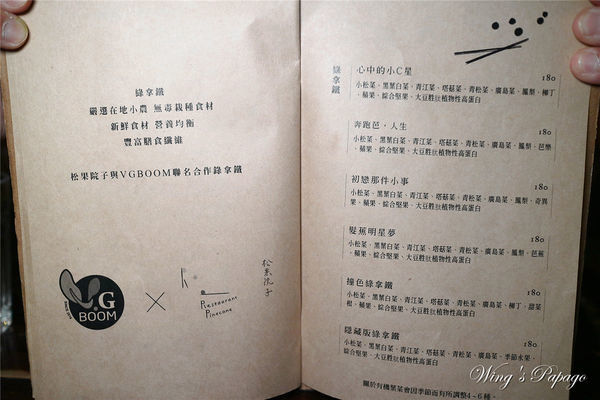 綠拿鐵
嚴選在地小農 無毒栽種食材
新鮮食材 營養均衡
豐富膳食纖維
松果院子與VGBOOM聯名合作綠拿鐵
VG
BOOM
Restaurant
Pinecone
松果院子
綠拿鐵
心中的小C星
180
小松菜、黑葉白菜、青江菜、塔菇菜、青松菜、廣島菜、鳳梨、柳丁
、蘋果、綜合堅果、大豆胜肽植物性高蛋白
奔跑芭，人生
180
小松菜、黑葉白菜、青江菜、塔菇菜、青松菜、廣島菜、鳳梨、芭樂
、蘋果、綜合堅果、大豆胜肽植物性高蛋白
初戀那件小事
180
小松菜、黑葉白菜、青江菜、塔菇菜、青松菜、廣島菜、鳳梨、奇異
果、蘋果、綜合堅果、大豆胜肽植物性高蛋白
髮蕉明星夢
180
小松菜、黑葉白菜、青江菜、塔菇菜、青松菜、廣島菜、鳳梨、芭蕉
、蘋果、綜合堅果、大豆胜肽植物性高蛋白
撞色綠拿鐵
180
小松菜、黑葉白菜、青江菜、塔菇菜、青松菜、廣島菜、柳丁、甜菜
根、蘋果、綜合堅果、大豆胜肽植物性高蛋白
隱藏版綠拿鐵
180
小松菜、黑葉白菜、青江菜、塔菇菜、青松菜、廣島菜、季節水果、
綜合堅果、大豆胜肽植物性高蛋白
關於有機葉菜會因季節而有所調整4-6種。
Wing's Papago